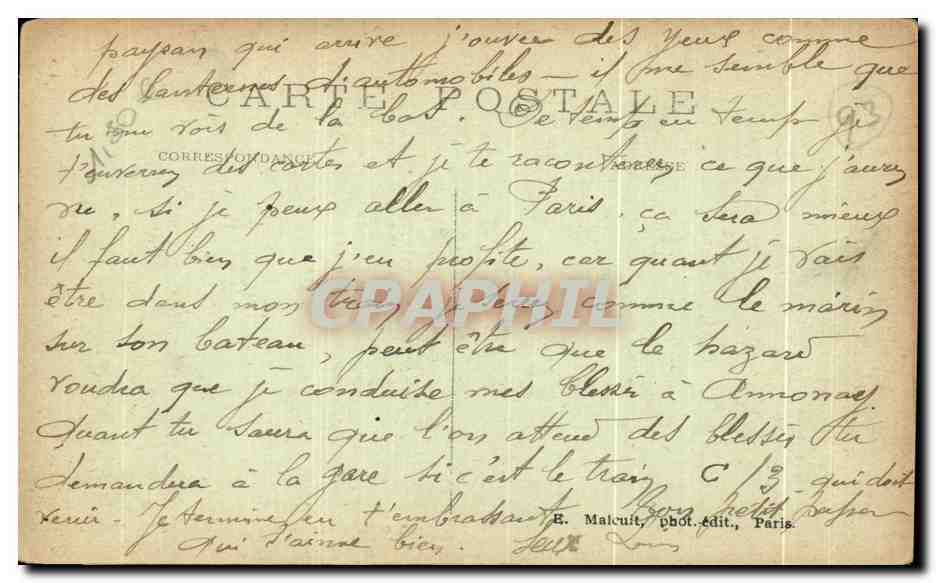 paysan qui arrive j'ouvre des yeux comme
des lanternes d'automobiles - il me semble que
CARTE POSTALE
tu me vois de la bas. De temp en temp je
93
1,50
CORRESPONDANCE
ADRESSE
t'enverrai des cartes et je te raconterai ce que j'aurai
vu, si je peux aller à Paris, ça sera mieux
il faut bien que j'en profite, car quant je vais
être dans mon train je serai comme le marin
CPAPHIL
sur son bateau, peut être que le hazard
voudra que je conduise mes blessés à Annonay
Quant tu saura que l'on attend des blessés tu
demandera à la gare si c'est le train C/3 qui doit
venir - Je termine en t'embrassant Ton petit
E. Malcuit, phot.-édit., Paris.
qui t'aime bien. Louis